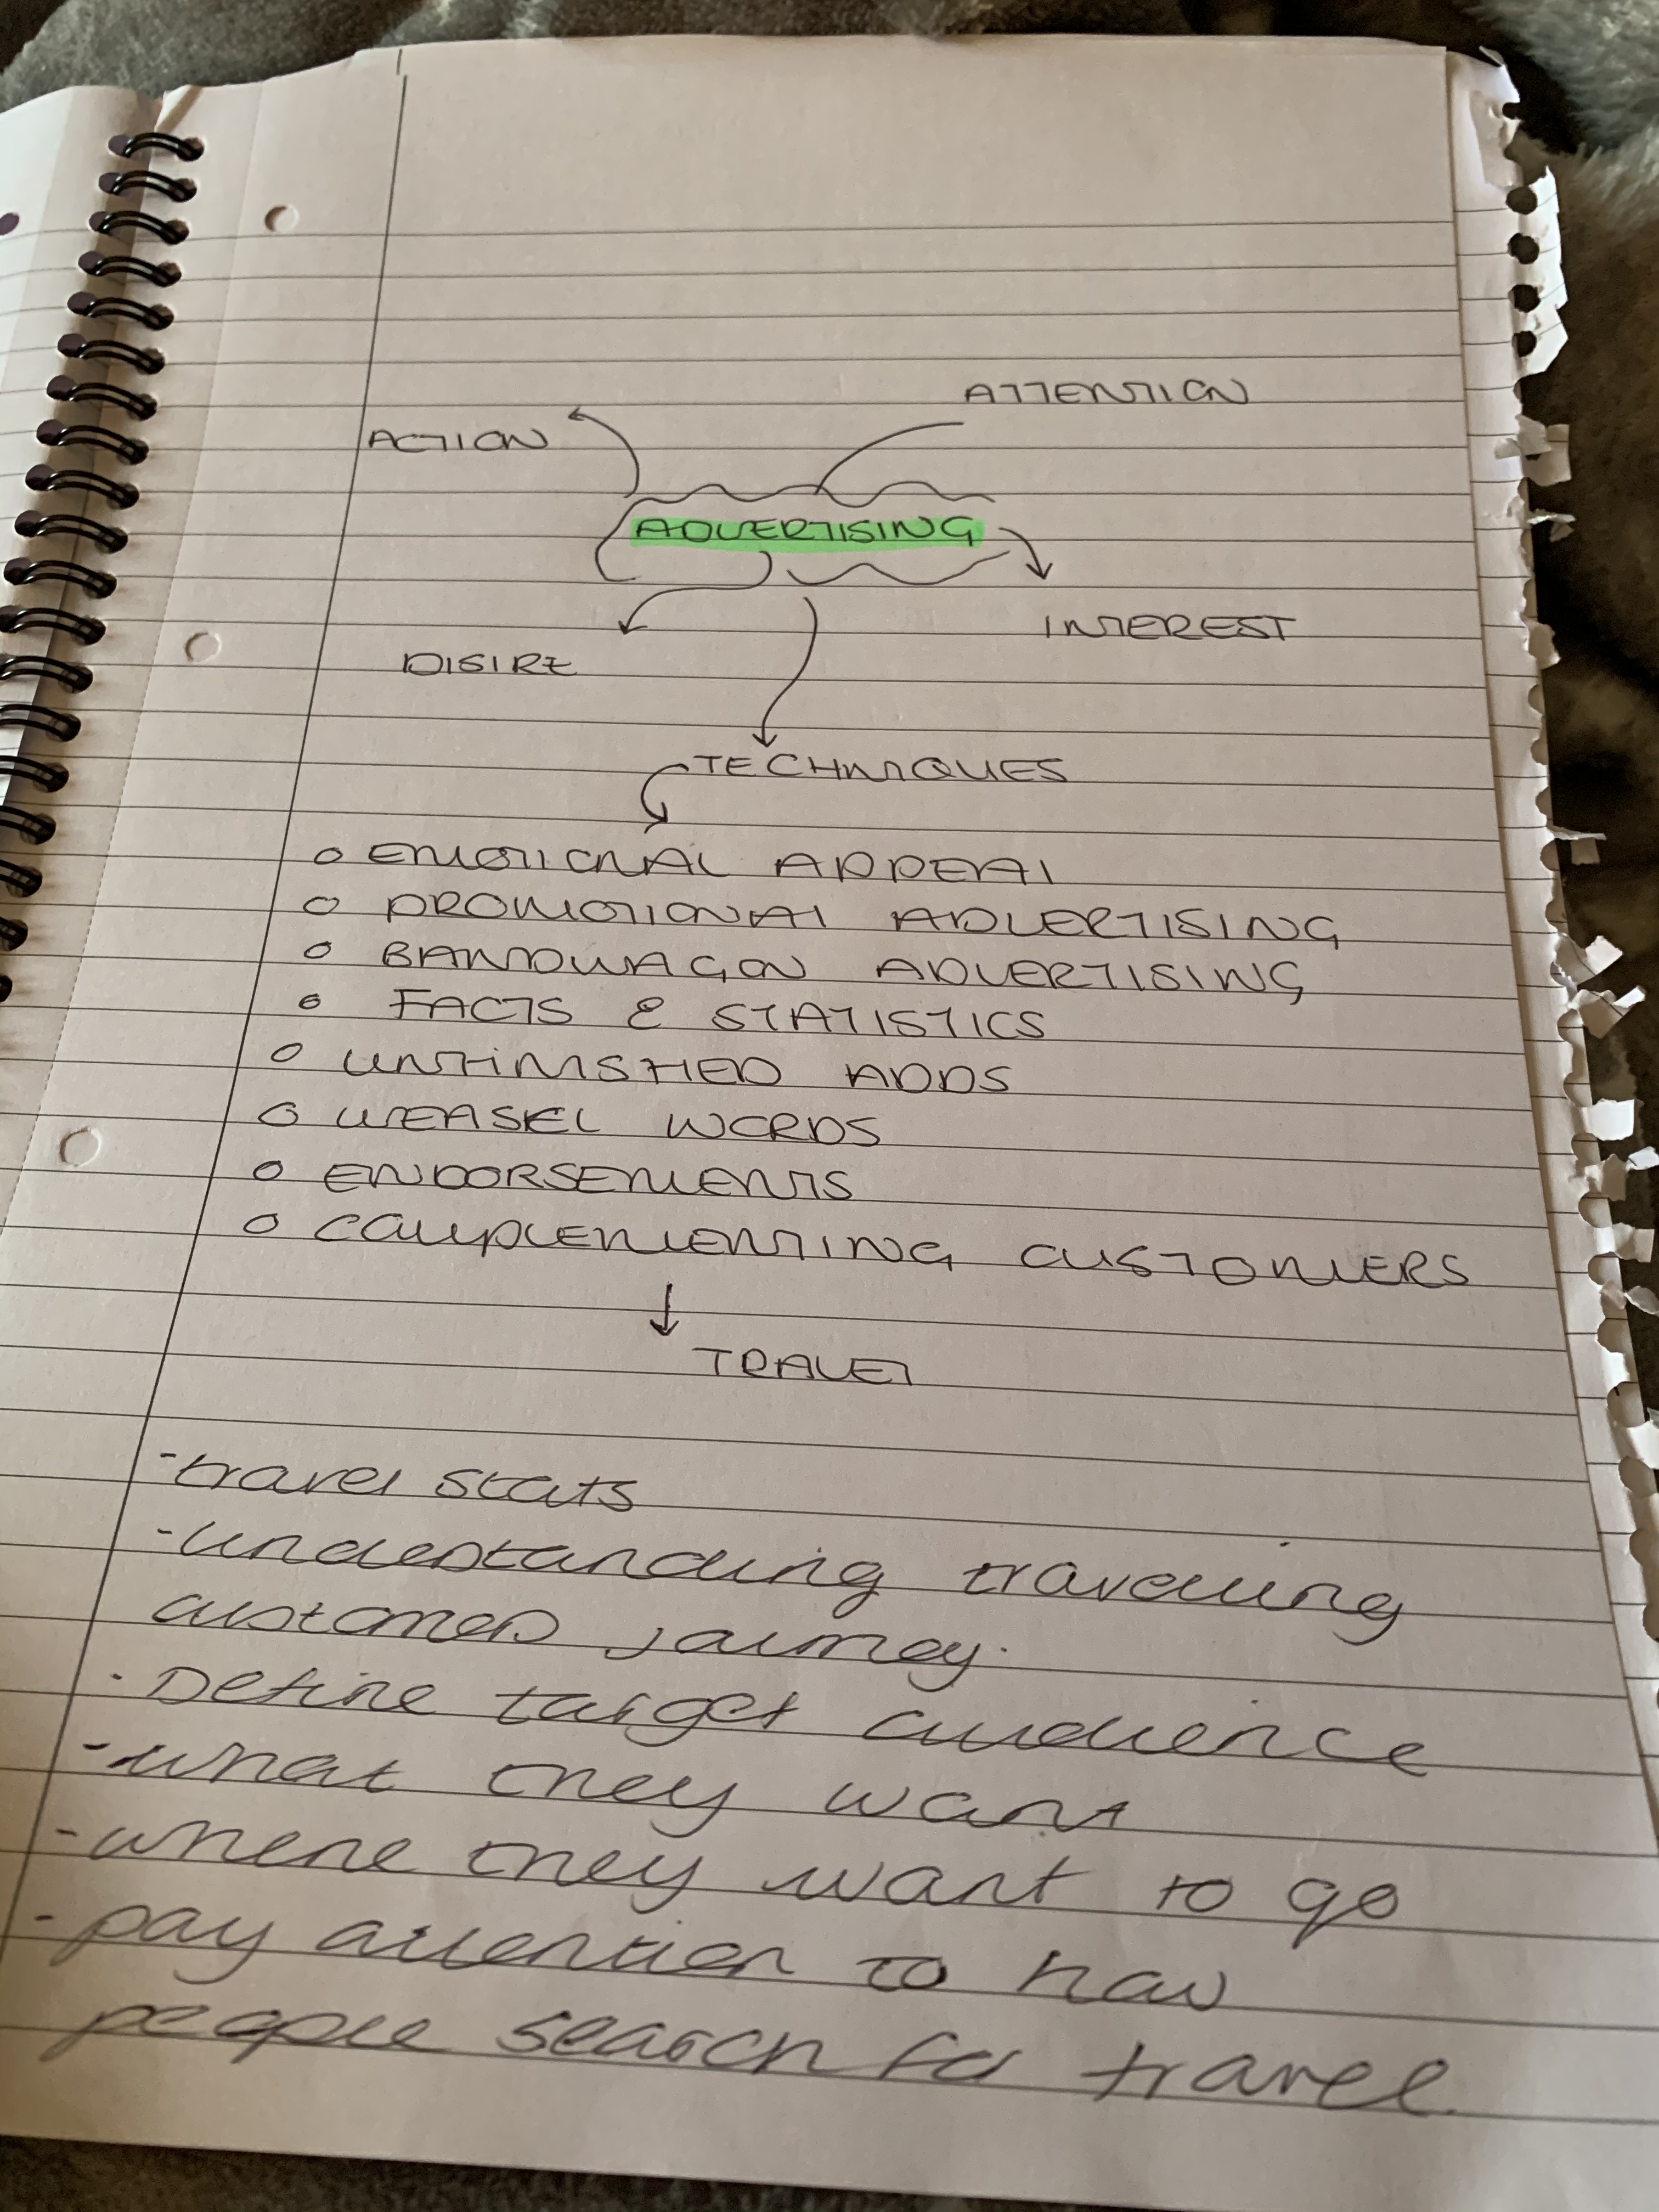 ATTENTION
ACTION
ADVERTISING
INTEREST
DISIRE
TECHNIQUES
EMOTIONAL APPEAL
PROMOTIONAL ADVERTISING
BANDWAGON ADVERTISING
FACTS & STATISTICS
UNFINISHED ADDS
WEASEL WORDS
ENDORSEMENTS
COMPLEMENTING CUSTOMERS
TRAVEL
-travel stats
-understanding travelling
customers journey.
-Define target audience
-what they want
-where they want to go
-pay attention to how
people search for travel